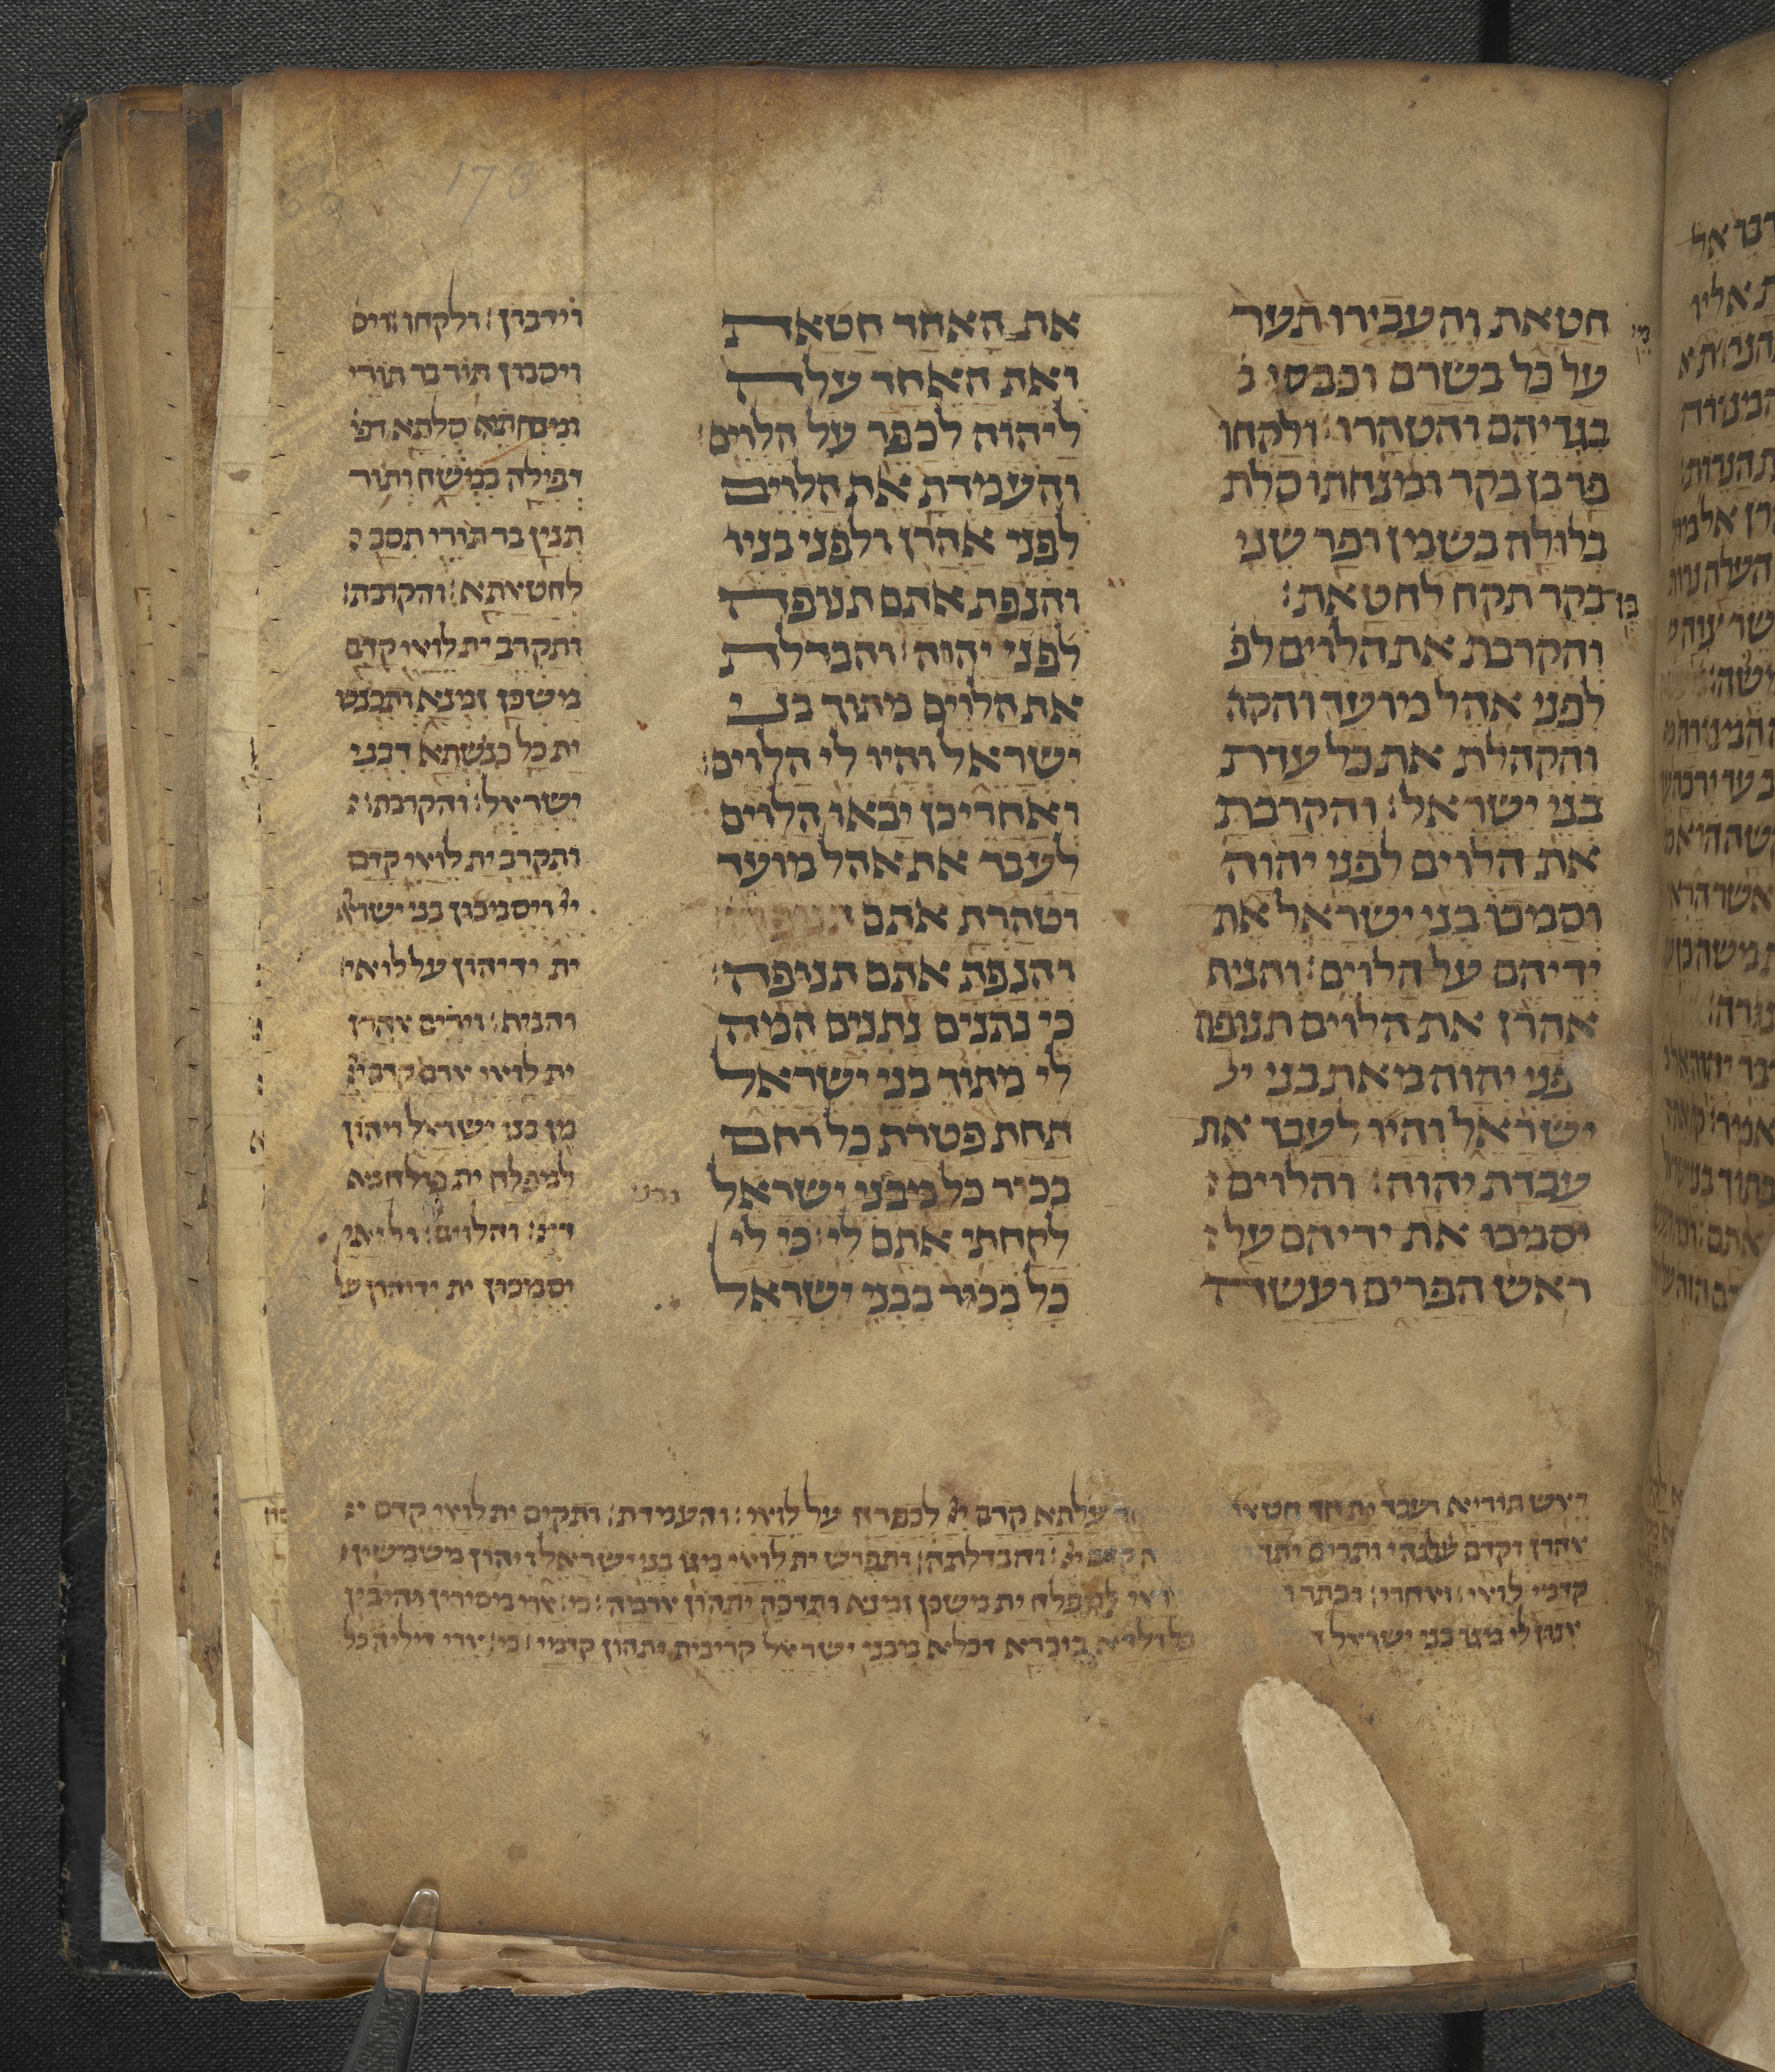 173
חטאת והעבירו תער
על כל בשרם וכבסו ב
בגדיהם והטהרו ולקחו
פר בן בקר ומנחתו סלת
בלולה בשמן ופר שני
בן בקר תקח לחטאת
והקרבת את הלוים לפ
לפני אהל מועד והקה
והקהלת את כל עדת
בני ישראל והקרבת
את הלוים לפני יהוה
וסמכו בני ישראל את
ידיהם על הלוים והניף
אהרן את הלוים תנופה
פני יהוה מאת בני י
ישראל והיו לעבד את
עבדת יהוה והלוים
יסמכו את ידיהם על
ראש הפרים ועשה
את האחד חטאת
ואת האחד עלה
ליהוה לכפר על הלוים
והעמדת את הלוים
לפני אהרן ולפני בניו
והנפת אתם תנופה
לפני יהוה והבדלת
את הלוים מתוך בני
ישראל והיו לי הלוים
ואחרי כן יבאו הלוים
לעבד את אהל מועד
וטהרת אתם
והנפת אתם תנופה
כי נתנים נתנים המה
לי מתוך בני ישראל
תחת פטרת כל רחם
בכור כל מבני ישראל
לקחתי אתם לי כי לי
כל בכור בבני ישראל
וידכון ולקחו ויס
ויסבון תור בר תורי
ומנחתא סלתא דפי
דפילה במשח ותור
תנין בר תורי תסב
לחטאתא והקרבת
ותקרב ית לואי קדם
משכן זמנא ותכנש
ית כל כנשתא דבני
ישראל והקרבת
ותקרב ית לואי קדם
ויסמכון בני ישרא
ית ידיהון על לואי
והניף וירים אהרן
ית לואי ארם קדם
מן בני ישראל ויהון
למפלח ית פולחנא
דיי והלוים ולואי
יסמכון ית ידיהון על
ראש תוריא ועבד ית חד חטא עלתא קדם יי לכפרה על לואי והעמדת ותקים ית לואי קדם
אהרן וקדם בנוהי ותרים יתהון והבדלת ותפרש ית לואי מגו בני ישראל ויהון משמשין
קדמי לואי ואחרי ובתר למפלח ית משכן זמנא ותדכי יתהון ארמה ארי מפרשין
אנון לי מגו בני ישראל ולדא בוכרא דכלא מבני ישראל קריבית יתהון קדמי ארי דילי כל